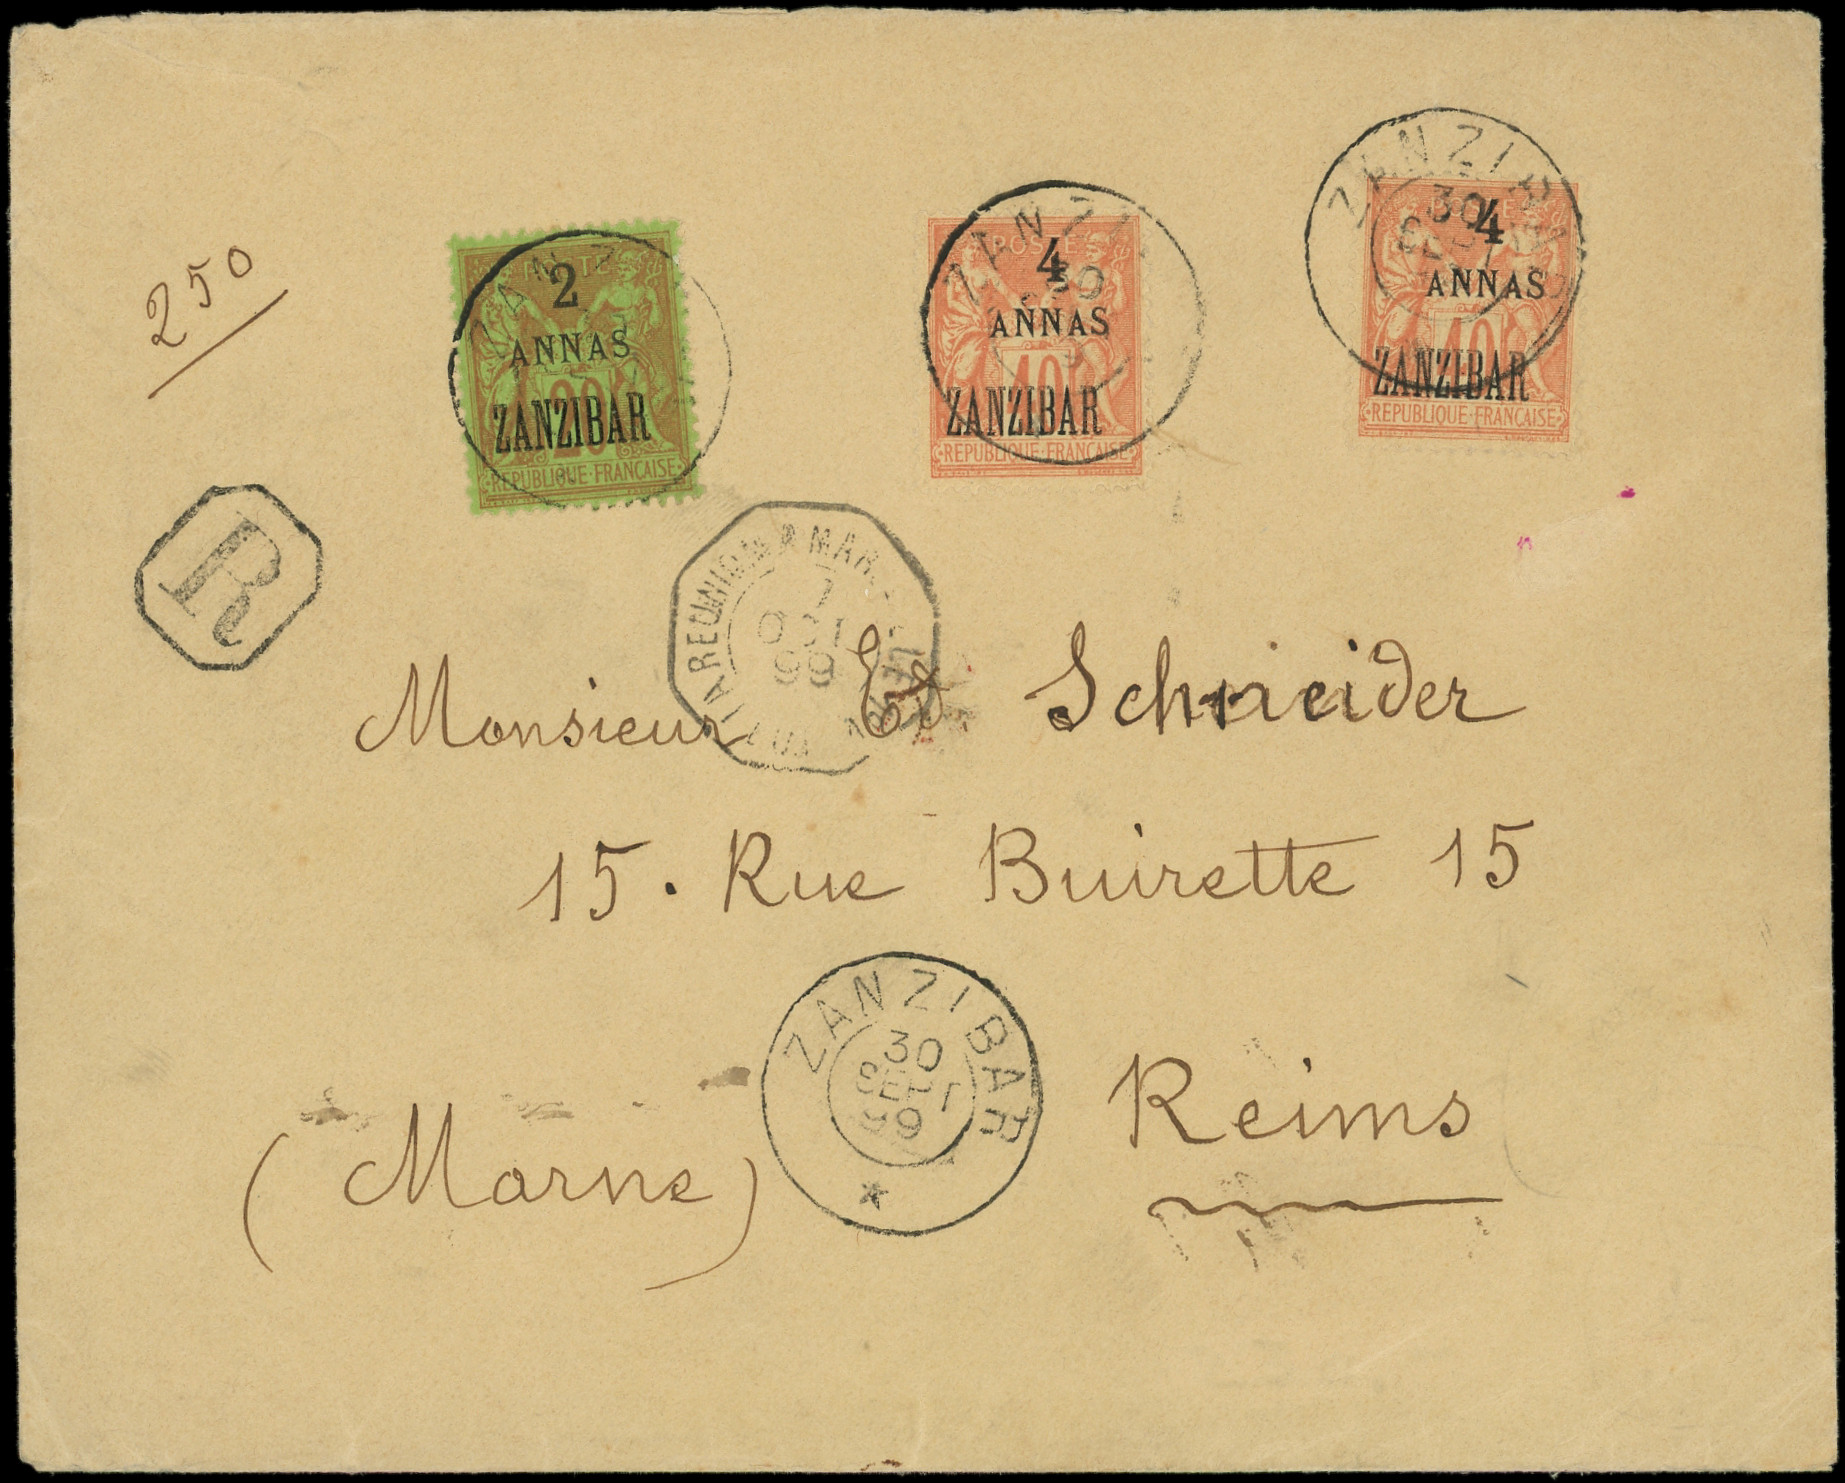 250
POSTE
2
ANNAS
20
ZANZIBAR
REPUBLIQUE·FRANÇAISE
POSTE
4
ANNAS
40
ZANZIBAR
REPUBLIQUE·FRANÇAISE
ZANZIBAR
30
4
ANNAS
40
ZANZIBAR
REPUBLIQUE·FRANÇAISE
R
LA REUNION A MARSEILLE
OCT
99
Monsieur Ed Schneider
15. Rue Buirette 15
ZANZIBAR
30
SEPT
99
Reims
(Marne)